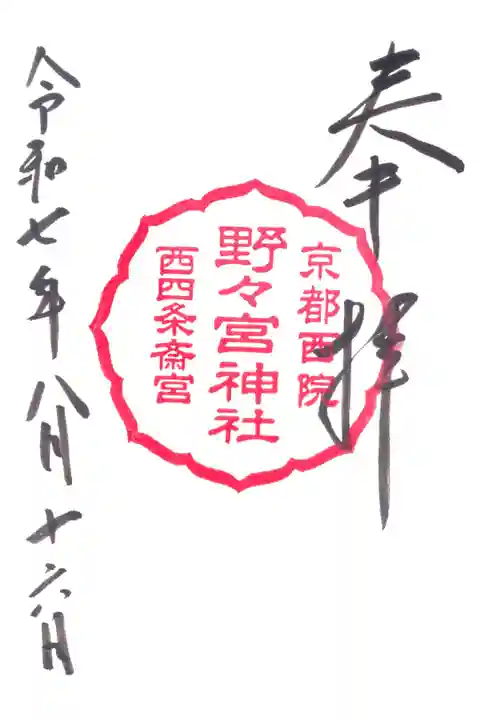 奉拝
京都西院
野々宮神社
西四条斎宮
令和七年八月十六日